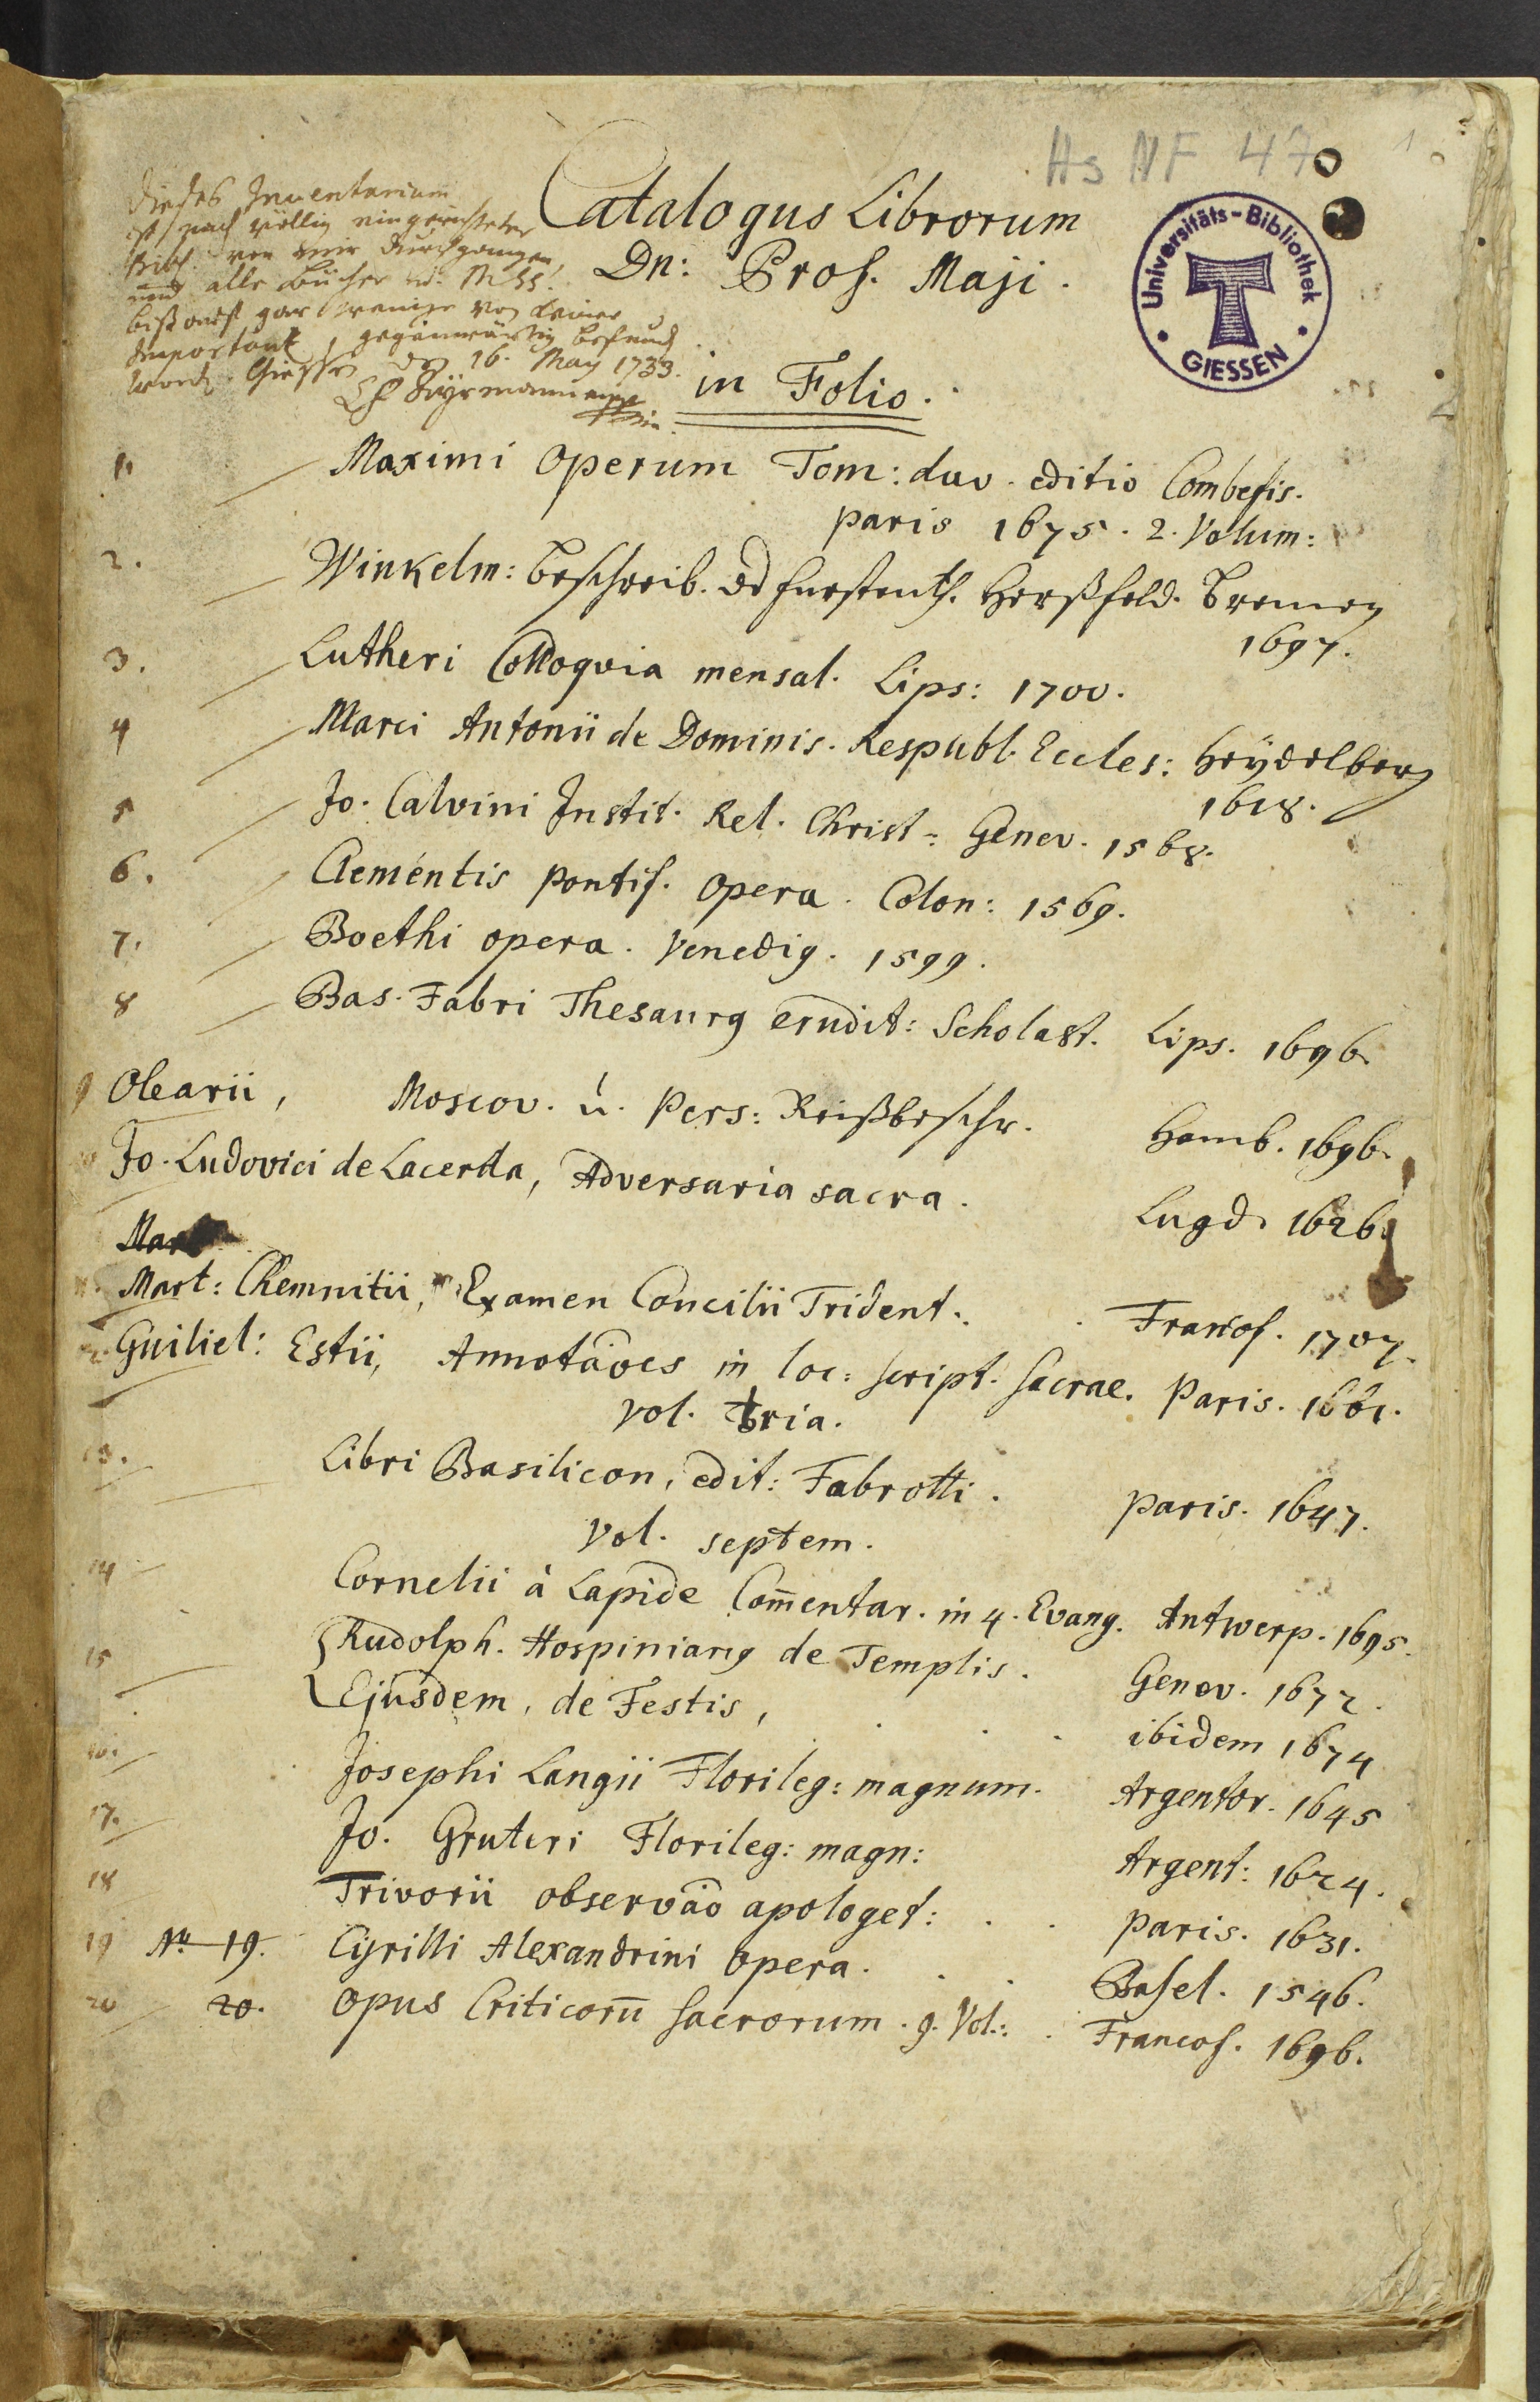 Hs NF 47
1
Catalogus Librorum
Dn: Prof. Maji.
Dieses Inventarium
ist nach völlig eingerichteter
Bibl. von mir durchgangen,
und alle Bücher u. MSS.
biß auf gar wenige von keiner
Importantz, gegenwärtig befund
word. Giessen den 16. May 1733.
Universitäts-Bibliothek
GIESSEN
in Folio.
1. Maximi Operum Tom: duo. editio Combefis.
paris 1675. 2. Volum:
2. Winkelm: beschreib. Fürstenth. Herßfeld. Bremen
1697.
3. Lutheri Colloqvia mensal. Lips: 1700.
4 Marci Antonii de Dominis. Respubl. Eccles: Heÿdelberg
1618.
5 Jo. Calvini Instit. Rel. Christ: Genev. 1568.
6. Clementis pontif. opera. Colon: 1569.
7. Boethi opera. Venedig. 1599.
8 Bas. Fabri Thesaurg erudit: Scholast. Lips. 1696.
9 Olearii, Moscov. u. Pers: Reißbeschr. Hamb. 1696.
10 Jo. Ludovici de Lacerda, Adversaria sacra. Lugd. 1626.
Mar
11. Mart: Chemnitii, Examen Concilii Trident. Francof. 1707.
12. Guiliel: Estii, Annotãoes in loc: script. sacrae. Paris. 1661.
vol. tria.
13. Libri Basilicon, edit: Fabrotti. paris. 1647.
Vol. septem.
14 Cornelii à Lapide Com̄entar. in 4. Evang. Antwerp. 1695.
15 Rudolph. Hospiniang de Templis. Genev. 1672.
Ejusdem, de Festis, ibidem 1674
16. Josephi Langii Florileg: magnum. Argentor. 1645
17. Jo. Gruteri Florileg: magn: Argent: 1624.
18 Trivorii observão apologet: paris. 1631.
19 No 19. Cyrilli Alexandrini opera. Basel. 1546.
20 20. Opus Criticorū sacrorum. 9. Vol: Francof. 1696.